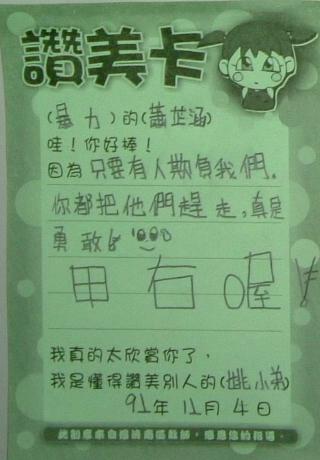 讚美卡
(暴力)的(蕭芷涵)
哇！你好棒！
因為只要有人欺負我們，
你都把他們趕走，真是
勇敢
甲右喔
我真的太欣賞你了，
我是懂得讚美別人的(姚小弟)
91年11月4日